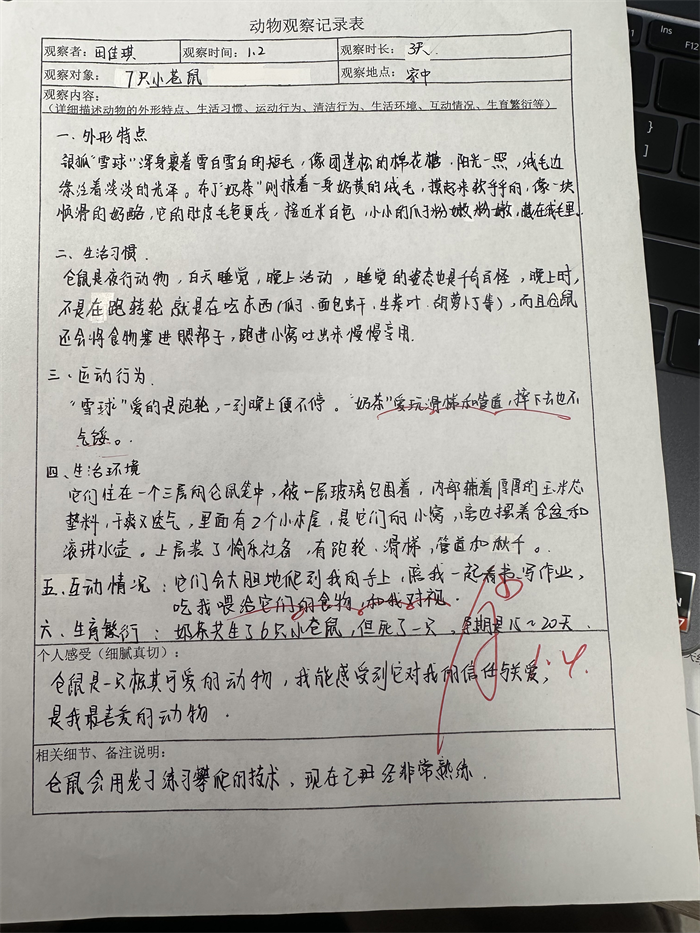 动物观察记录表
观察者：田佳琪 观察时间：1.2 观察时长：3天.
观察对象：7只小老鼠 观察地点：家中
观察内容：
（详细描述动物的外形特点、生活习惯、运动行为、清洁行为、生活环境、互动情况、生育繁衍等）
一.外形特点
银狐"雪球"浑身裹着雪白雪白的短毛，像团蓬松的棉花糖，阳光一照，绒毛边
缘泛着淡淡的光泽。布丁"奶茶"则披着一身奶黄的绒毛，摸起来软乎乎的，像一块
顺滑的奶酪，它的肚皮毛色更浅，接近米白色，小小的爪子粉嫩粉嫩，藏在绒毛里.
二、生活习惯.
仓鼠是夜行动物，白天睡觉，晚上活动，睡觉的姿态也是千奇百怪，晚上时，
不是在跑转轮就是在吃东西(瓜子.面包虫干.生菜叶.胡萝卜丁等)，而且仓鼠
还会将食物塞进腮帮子，跑进小窝吐出来慢慢享用.
三、运动行为.
"雪球"爱的是跑轮，一到晚上便不停。"奶茶"爱玩滑梯和管道，摔下去也不
气馁。.
四、生活环境
它们住在一个三层的仓鼠笼中，被一层玻璃包围着，内部铺着厚厚的玉米芯
垫料，干爽又透气，里面有2个小木屋，是它们的小窝，旁边摆着食盆和
滚珠水壶。上层装了愉乐设备，有跑轮、滑梯，管道和秋千。.
五.互动情况：它们会大胆地爬到我的手上，陪我一起看书写作业，
吃我喂给它们的食物，和我对视.
六、生育繁衍：奶茶共生了6只小老鼠，但死了一只，孕期是15~20天.
阅
1.4.
个人感受（细腻真切）：
仓鼠是一只极其可爱的动物，我能感受到它对我的信任与关爱，
是我最喜爱的动物.
相关细节、备注说明：
仓鼠会用笼子练习攀爬的技术，现在已经非常熟练.
Ins
F12